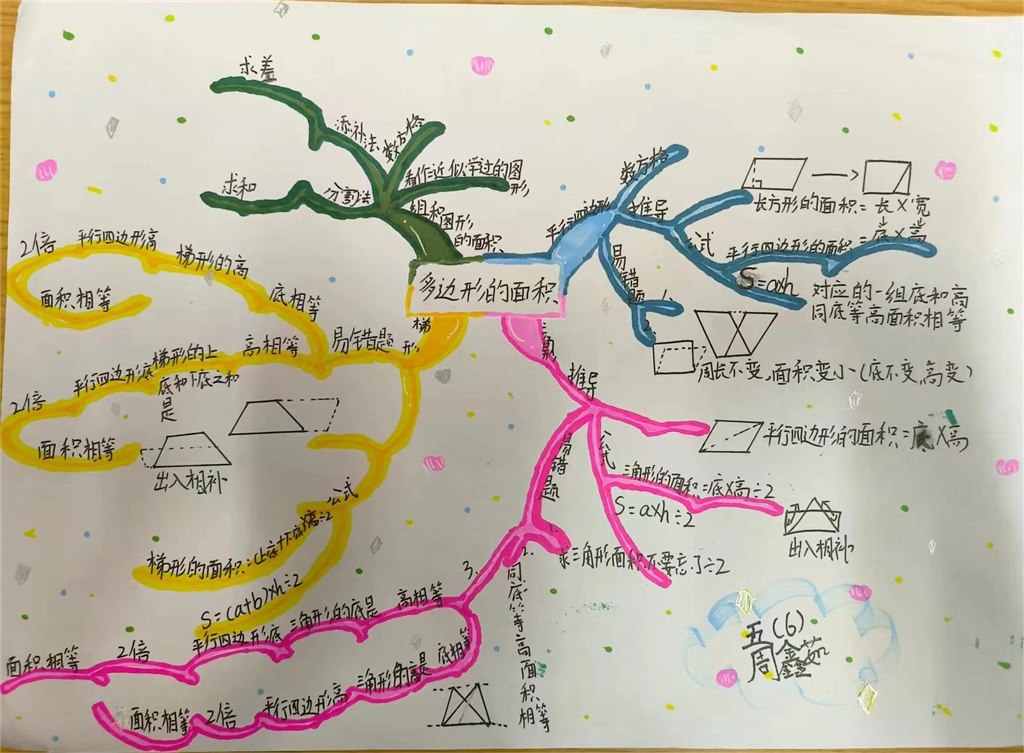 多边形的面积
组和图形
的面积
分割法
求和
添补法
求差
数方格
看作近似学过的图
形
平行四边形
数方格
推导
长方形的面积=长×宽
平行四边形的面积=底×高
公式
S=axh
对应的一组底和高
同底等高面积相等
易错题
1.
2.
周长不变,面积变小(底不变,高变)
三角形
推导
平行四边形的面积=底×高
公式
三角形的面积=底×高÷2
S=axh÷2
出入相补
易错题
1.
求三角形面积不要忘了÷2
2.
同底等高面积相等
3.
高相等
三角形的底是
平行四边形底
2倍
面积相等
底相等
三角形的高是
平行四边形高
2倍
面积相等
梯形
易错题
底相等
梯形的高
平行四边形高
2倍
面积相等
高相等
梯形的上
底和下底之和
是
平行四边形底
2倍
面积相等
出入相补
公式
梯形的面积=(上底+下底)×高÷2
S=(a+b)×h÷2
五(6)
周鑫茹